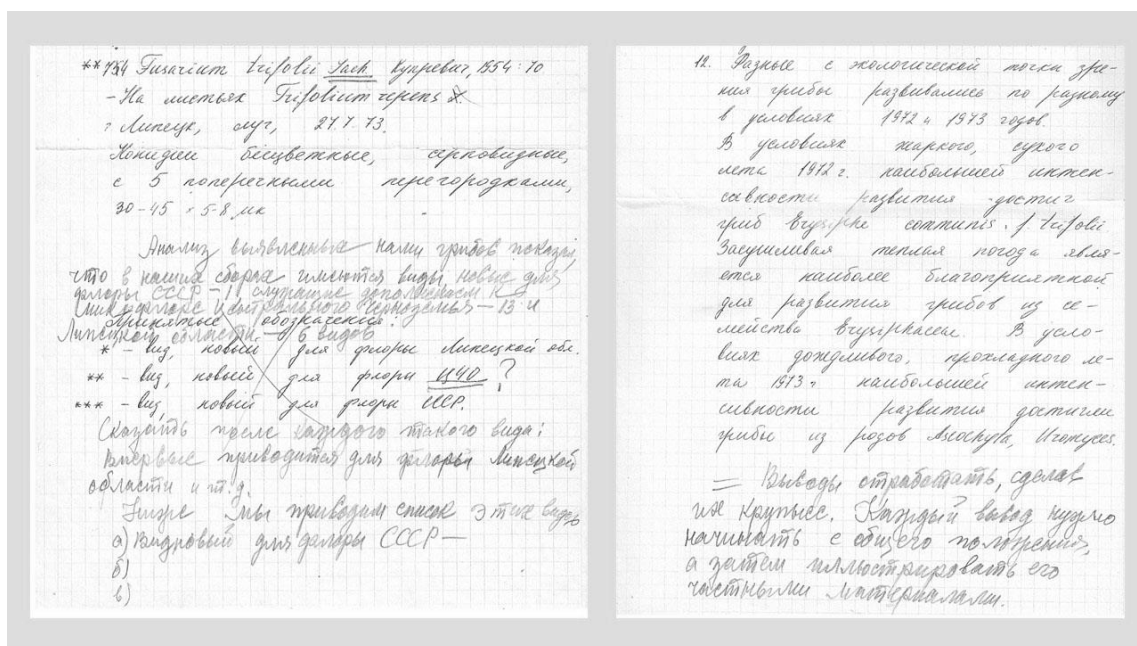 **754 Fusarium trifolii Jacz. Купревич, 1954: 70
- На листьях Trifolium repens L.
г. Липецк, луг, 27.7.73.
Конидии бесцветные, серповидные,
с 5 поперечными перегородками,
30-45 × 5-8 мк
Анализ выявленных нами грибов показал,
что в наших сборах имеются виды, новые для
флоры СССР - 11 служащие дополнением к
микофлоре Центрального Черноземья - 13 и
Принятые обозначения:
Липецкой области - 6 видов
* - вид, новый для флоры Липецкой обл.
** - вид, новый для флоры ЦЧО ?
*** - вид, новый для флоры СССР.
Сказать после каждого такого вида:
Впервые приводится для флоры Липецкой
области и т.д.
Ниже мы приводим список этих видов
а) Вид новый для флоры СССР —
б)
в)
12. Разные с экологической точки зре-
ния грибы развивались по разному
в условиях 1972 и 1973 годов.
В условиях жаркого, сухого
лета 1972 г. наибольшей интен-
сивности развития достиг
гриб Erysiphe communis f. trifolii.
Засушливая теплая погода явля-
ется наиболее благоприятной
для развития грибов из се-
мейства Erysiphaceae. В усло-
виях дождливого, прохладного ле-
та 1973 г. наибольшей интен-
сивности развития достигли
грибы из родов Ascochyta, Uromyces.
= Выводы отработать, сделав
их крупнее. Каждый вывод нужно
начинать с общего положения,
а затем иллюстрировать его
частными материалами.